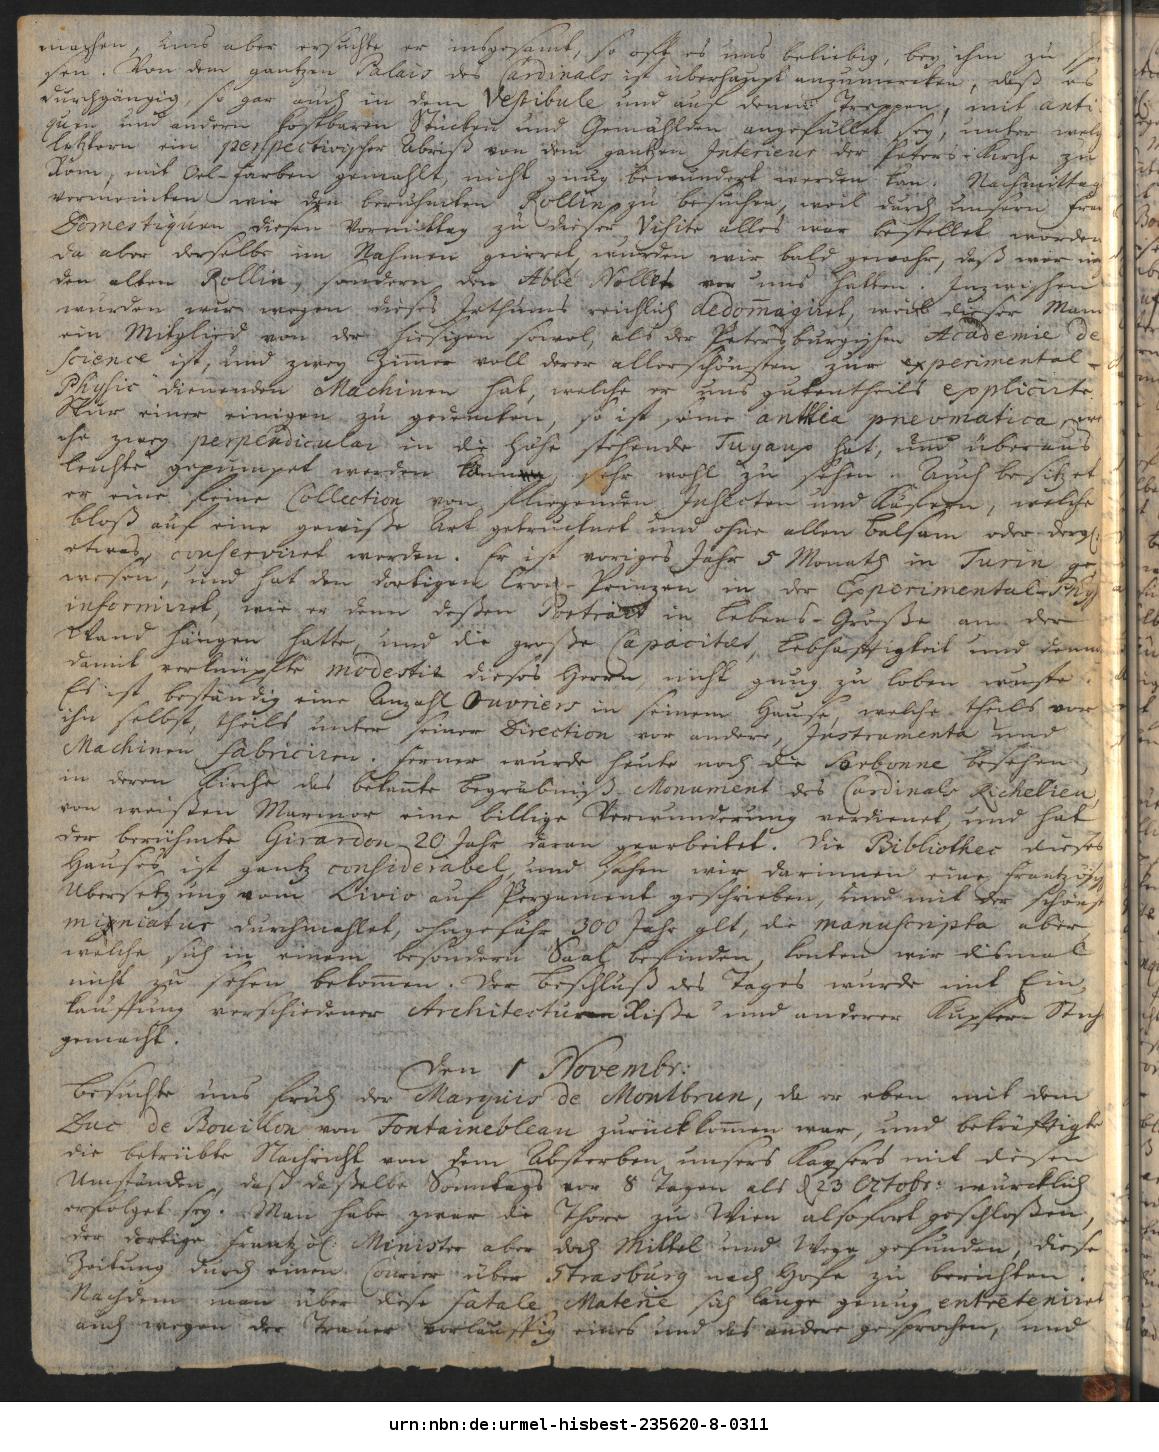 machen, uns aber ersuchte er insgesamt, so offt es uns beliebig, bey ihm zu
sen. Von dem gantzen Palais des Cardinals ist überhaupt anzumercken, daß es
durchgängig, so gar auch in dem Vestibule und auf denen Treppen, mit anti
quen und andern kostbaren Stücken und Gemählden angefüllet sey, unter welch
letztern ein perspectivischer Abriß von dem gantzen Interieur der Peters-Kirche zu
Rom, mit Oel-farben gemahlt, nicht gnug bewundert werden kan. Nachmittag
vermeinten wir den berühmten Rollin zu besuchen, weil durch unsern
Domestiquen diesen Vormittag zu dieser Visite alles war bestellet worden
da aber derselbe im Nahmen geirret, wurden wir bald gewahr, daß wir
den alten Rollin, sondern den Abbé Nollet vor uns hatten. Inzwischen
wurden wir wegen dieses Irthums reichlich dedom̅agiret, weil dieser Mann
ein Mitglied von der hiesigen sowol, als der Petersburgischen Academie de
science ist, und zwey Zimmer voll derer allerschönsten zur experimental-
Physic dienenden Machinen hat, welche er uns gutentheils explicirte.
Nur einer einigen zu gedencken, so ist seine antlia pnevmatica,
che zwey perpendicular in die Höhe stehende Tuyaux hat, und überaus
leichte gepumpet werden sehr wohl zu sehen. Auch besitzet
er eine feine Collection von fliegenden Insecten und Käfern, welche
bloß auf eine gewisse Art getrucknet und ohne allen balsam oder dergl:
etwas, conserviret werden. Er ist voriges Jahr 5 Monath in Turin ge
wesen, und hat den dortigen Cron-Prinzen in der Experimental-Phys
informiret, wie er denn dessen Portrait in Lebens-Größe an der
Wand hängen hatte, und die große Capacität, Lebhafftigkeit und
damit verknüpfte modestie dieses Herrn, nicht gnug zu loben wuste.
Es ist beständig eine Anzahl Ouvriers in seinem Hause, welche theils vor
ihn selbst, theils unter seiner Direction vor andere, Instrumenta und
Machinen fabriciren. Ferner wurde heute noch die Sorbonne besehen,
in deren Kirche das bekante Begräbniß-Monument des Cardinals Richelieu,
von weissen Marmor eine billige Verwunderung verdienet, und hat
der berühmte Girardon 20 Jahr daran gearbeitet. Die Bibliothec dieses
Hauses ist gantz considerabel, und sahen wir darinnen eine frantzösch
Übersetzung vom Livio auf Pergament geschrieben, und mit der schönst
miniatur durchmahlet, ohngefähr 300 Jahr alt, die manuscripta aber,
welche sich in einem besondern Saal befinden, konten wir dismal
nicht zu sehen bekom̅en. Der Beschluß des Tages wurde mit Ein,
kauffung verschiedener Architectur Riße und anderer Kupfer Stich
gemacht.
Den 1 Novembr:
besuchte uns früh der Marquis de Montbrun, da er eben mit dem
Duc de Bouillon von Fontainebleau zurückkom̅en war, und bekräfftigte
die betrübte Nachricht von dem Absterben unsers Kaysers mit diesen
Umständen, daß dasselbe Sonntags vor 8 Tagen als d 23 Octobr: würcklich
erfolget sey. Man habe zwar die Thore zu Wien alsofort geschloßen,
der dortige frantzös. Minister aber doch Mittel und Wege gefunden, diese
Zeitung durch einen Courier über Strasburg nach Hofe zu berichten.
Nachdem man über diese fatale Materie sich lange genug entreteniret
auch wegen der Trauer vorläuffig eines und das andere gesprochen, und
urn:nbn:de:urmel-hisbest-235620-8-0311